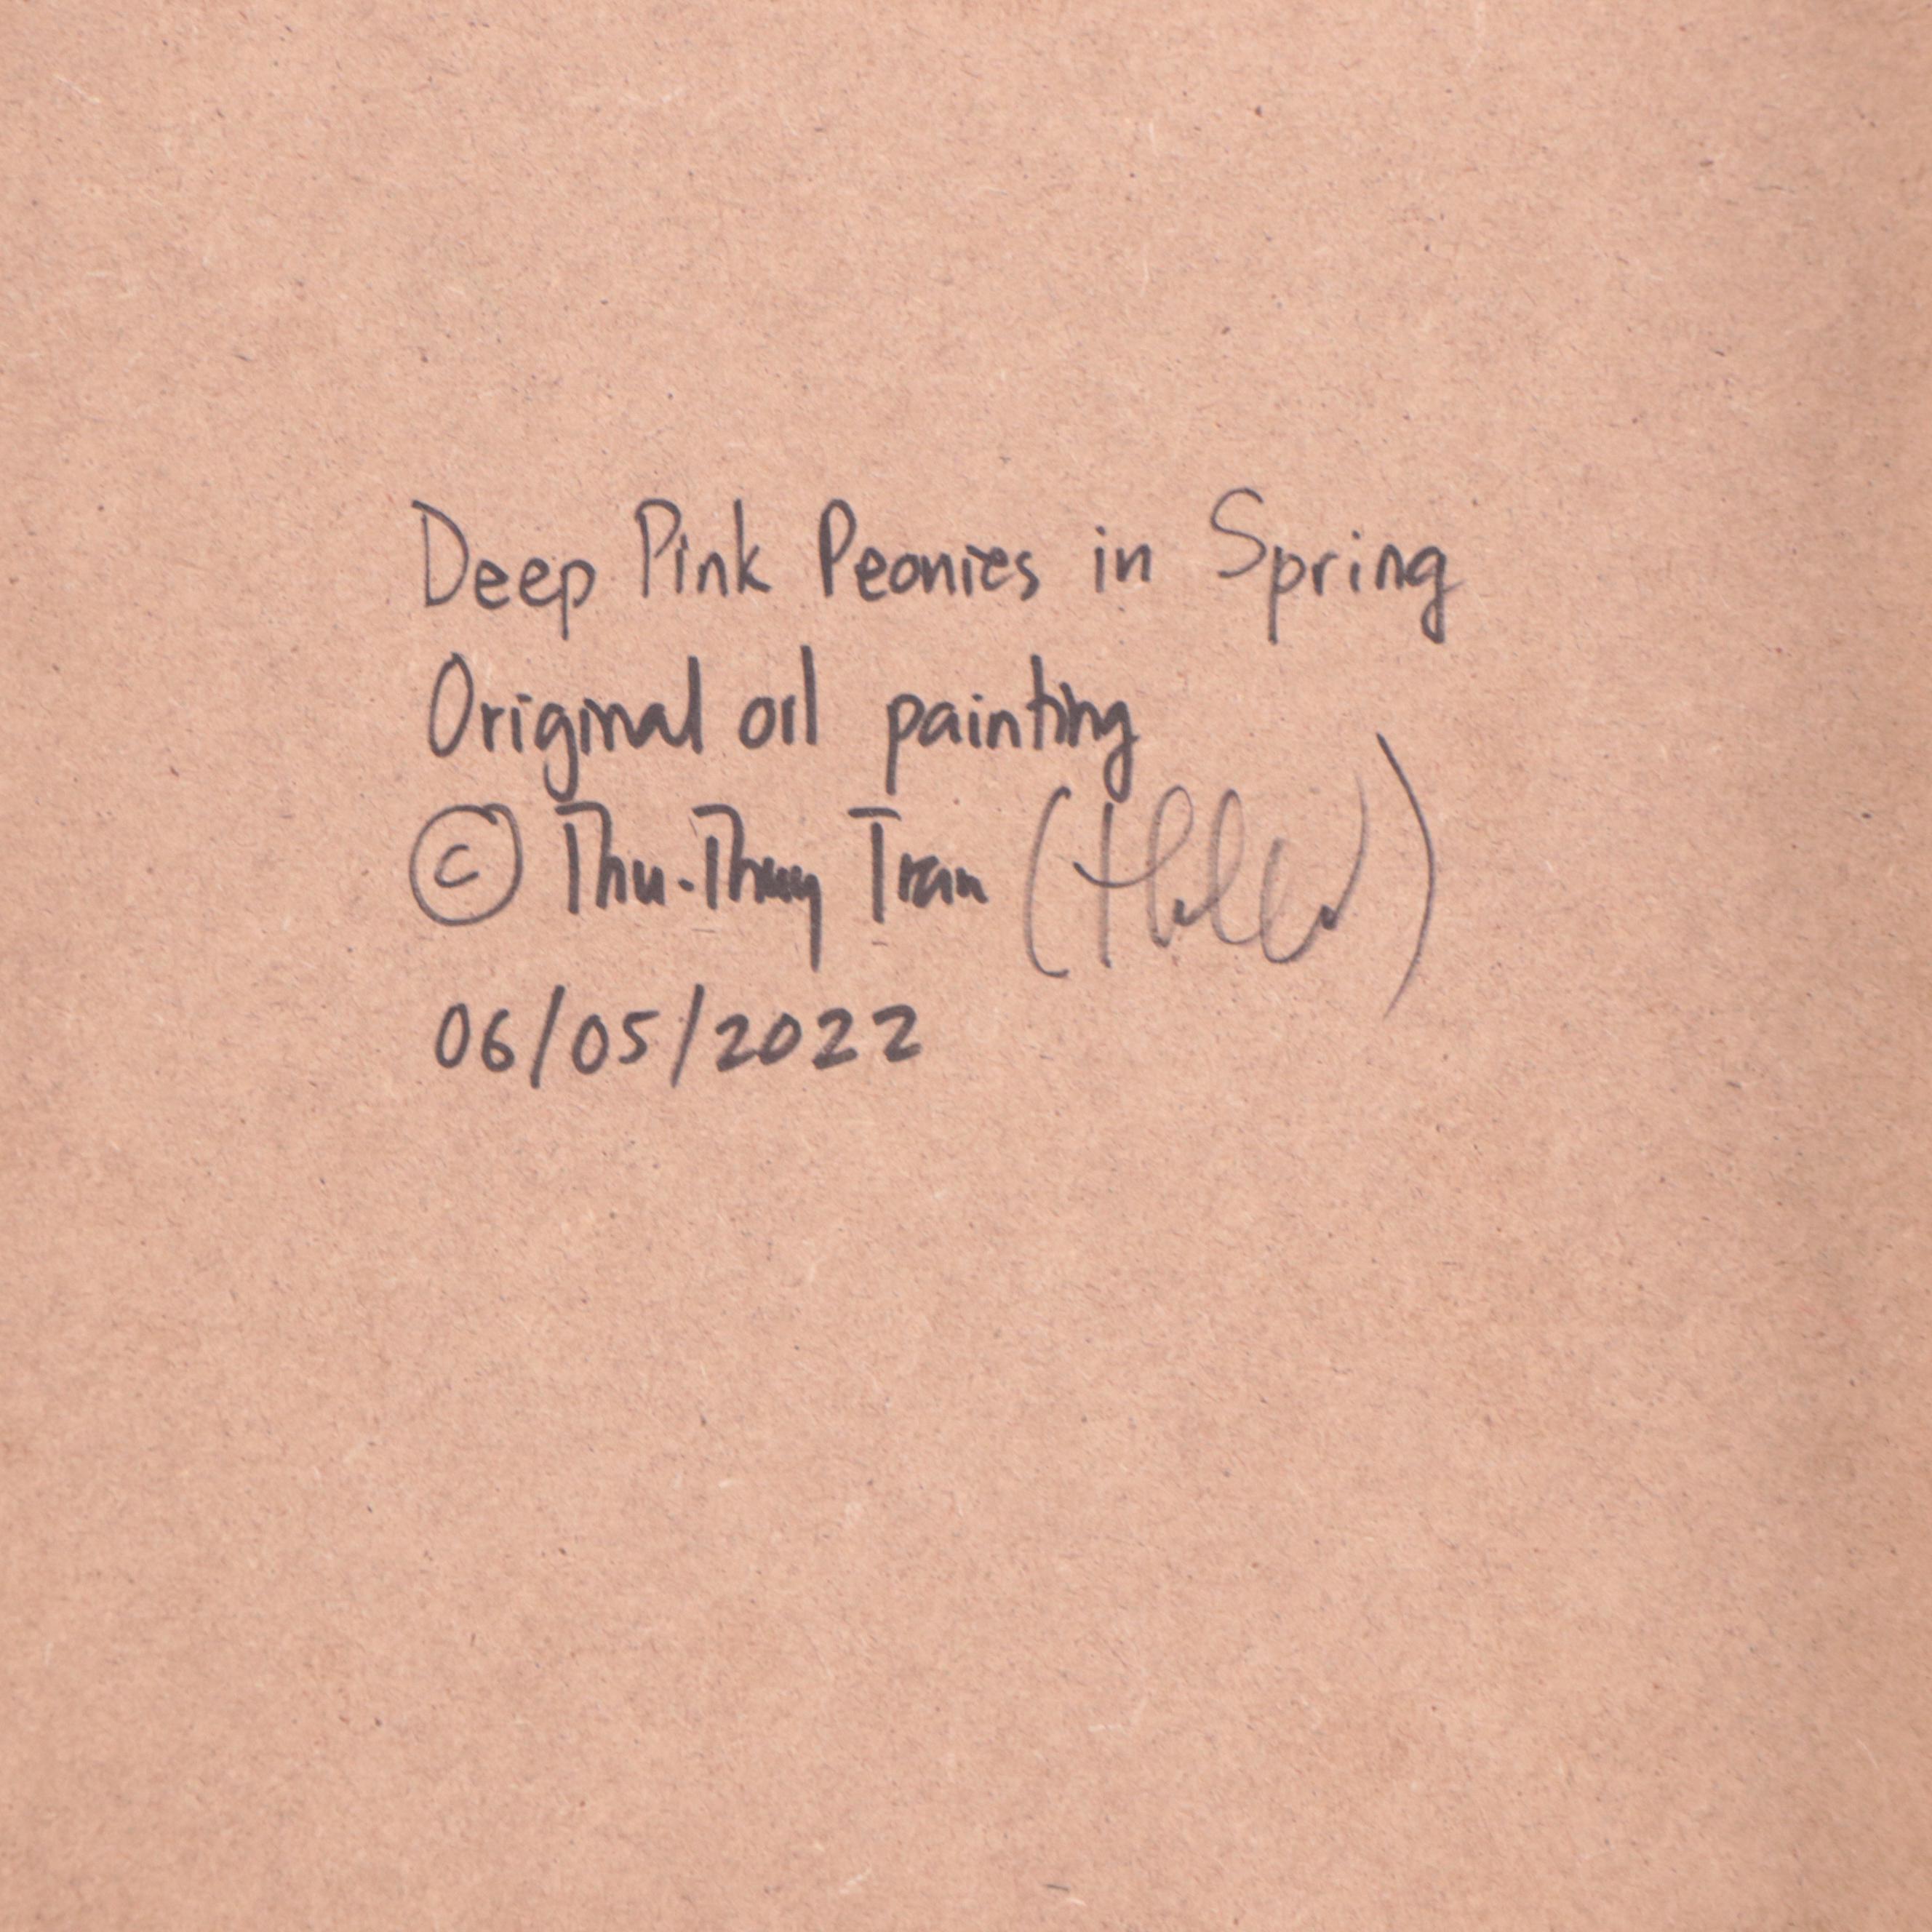 Deep Pink Peonies in Spring
Original oil painting
© Thu-Thuy Tran
06/05/2022